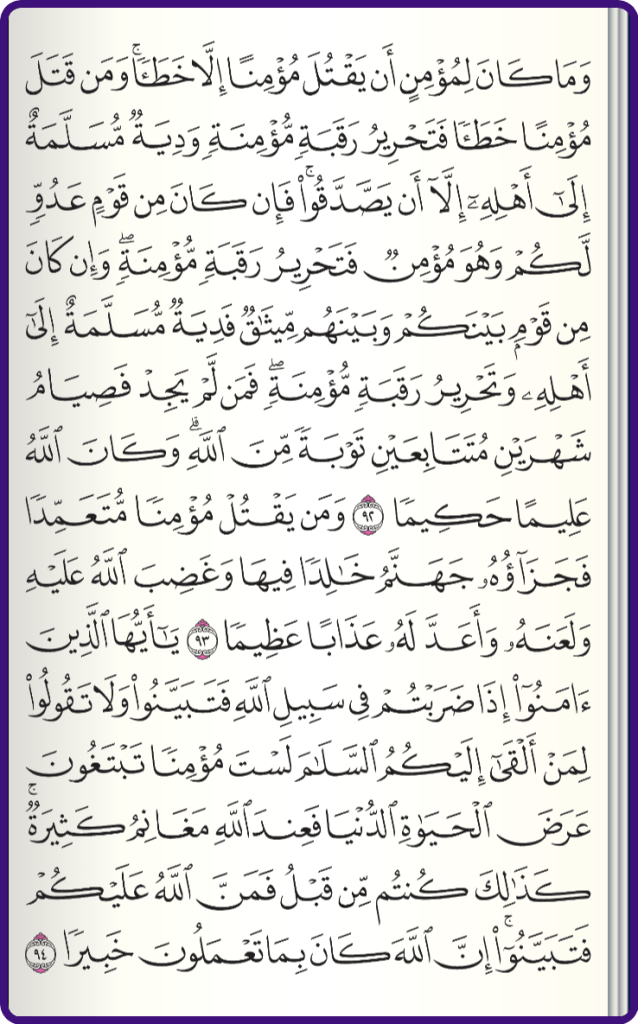 وَمَا كَانَ لِمُؤْمِنٍ أَن يَقْتُلَ مُؤْمِنًا إِلَّا خَطَـًٔا ۚ وَمَن قَتَلَ
مُؤْمِنًا خَطَـًٔا فَتَحْرِيرُ رَقَبَةٍ مُّؤْمِنَةٍ وَدِيَةٌ مُّسَلَّمَةٌ
إِلَىٰٓ أَهْلِهِۦٓ إِلَّآ أَن يَصَّدَّقُوا۟ ۚ فَإِن كَانَ مِن قَوْمٍ عَدُوٍّ
لَّكُمْ وَهُوَ مُؤْمِنٌ فَتَحْرِيرُ رَقَبَةٍ مُّؤْمِنَةٍ ۖ وَإِن كَانَ
مِن قَوْمٍۭ بَيْنَكُمْ وَبَيْنَهُم مِّيثَـٰقٌ فَدِيَةٌ مُّسَلَّمَةٌ إِلَىٰٓ
أَهْلِهِۦ وَتَحْرِيرُ رَقَبَةٍ مُّؤْمِنَةٍ ۖ فَمَن لَّمْ يَجِدْ فَصِيَامُ
شَهْرَيْنِ مُتَتَابِعَيْنِ تَوْبَةً مِّنَ ٱللَّهِ ۗ وَكَانَ ٱللَّهُ
عَلِيمًا حَكِيمًا ٩٢ وَمَن يَقْتُلْ مُؤْمِنًا مُّتَعَمِّدًا
فَجَزَآؤُهُۥ جَهَنَّمُ خَـٰلِدًا فِيهَا وَغَضِبَ ٱللَّهُ عَلَيْهِ
وَلَعَنَهُۥ وَأَعَدَّ لَهُۥ عَذَابًا عَظِيمًا ٩٣ يَـٰٓأَيُّهَا ٱلَّذِينَ
ءَامَنُوٓا۟ إِذَا ضَرَبْتُمْ فِى سَبِيلِ ٱللَّهِ فَتَبَيَّنُوا۟ وَلَا تَقُولُوا۟
لِمَنْ أَلْقَىٰٓ إِلَيْكُمُ ٱلسَّلَـٰمَ لَسْتَ مُؤْمِنًا تَبْتَغُونَ
عَرَضَ ٱلْحَيَوٰةِ ٱلدُّنْيَا فَعِندَ ٱللَّهِ مَغَانِمُ كَثِيرَةٌ ۚ
كَذَٰلِكَ كُنتُم مِّن قَبْلُ فَمَنَّ ٱللَّهُ عَلَيْكُمْ
فَتَبَيَّنُوٓا۟ ۚ إِنَّ ٱللَّهَ كَانَ بِمَا تَعْمَلُونَ خَبِيرًا ٩٤